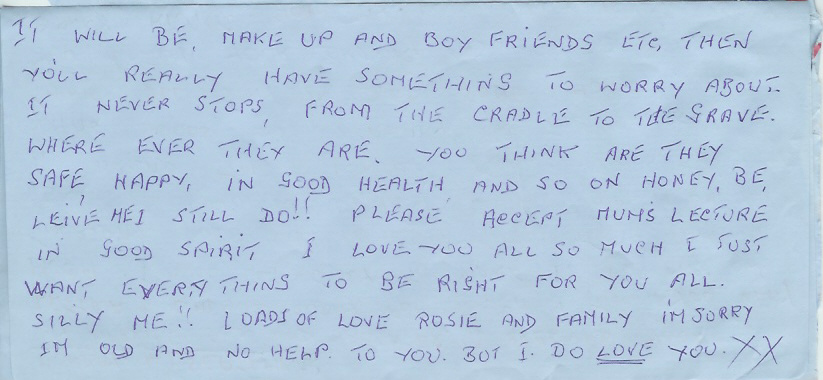 IT WILL BE, MAKE UP AND BOY FRIENDS ETC, THEN
YO'LL REALLY HAVE SOMETHING TO WORRY ABOUT.
IT NEVER STOPS, FROM THE CRADLE TO THE GRAVE.
WHERE EVER THEY ARE. YOU THINK ARE THEY
SAFE HAPPY, IN GOOD HEALTH AND SO ON HONEY, BE,
LEIVE ME I STILL DO!! PLEASE ACCEPT MUM'S LECTURE
IN GOOD SPIRIT I LOVE YOU ALL SO MUCH I JUST
WANT EVERYTHING TO BE RIGHT FOR YOU ALL.
SILLY ME!! LOADS OF LOVE ROSIE AND FAMILY I'M SORRY
IM OLD AND NO HELP. TO YOU. BUT I. DO LOVE YOU. XX